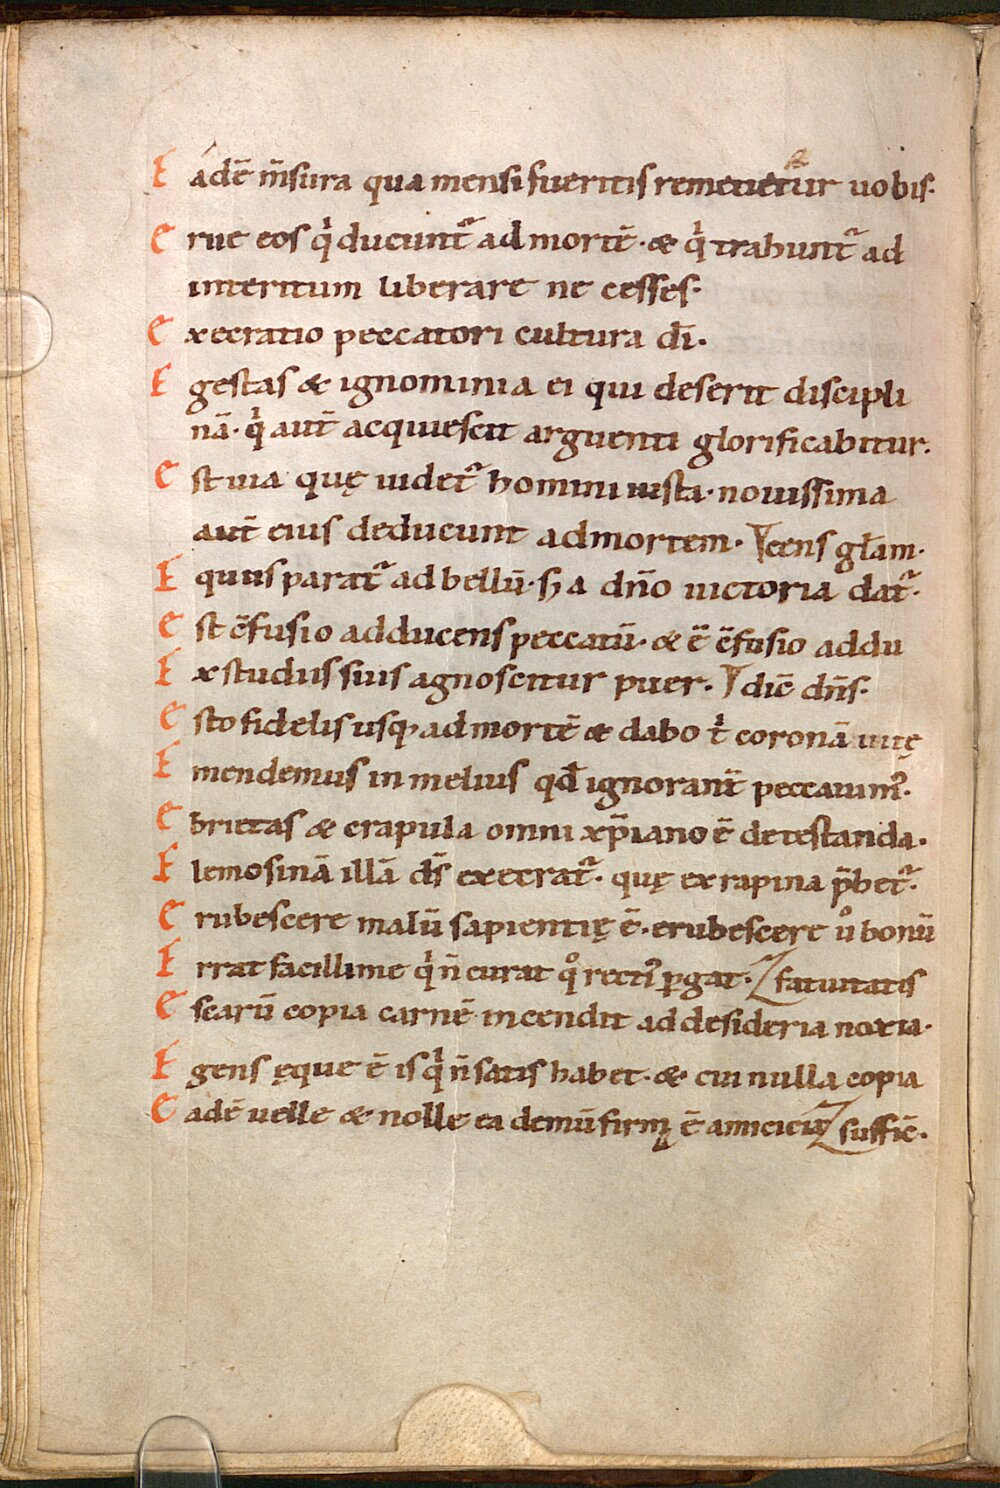 E adē m̄sura qua mensi fueritis remetiet᷑ur uobis.
E rue eos q̍ ducunt᷑ ad mortē. & q̍ trahunt᷑ ad
interitum liberare ne cesses.
E xecratio peccatori cultura dī.
E gestas & ignominia ei qui deserit discipli
nā. q̍ aut̄ acquiescit arguenti glorificabitur.
E st uia quę uidet᷑ homini iusta. nouissima
aut̄ eius deducunt ad mortem. cens gl̄am.
E quus parat᷑ ad bellū. s; a dn̄o uictoria dat᷑.
E st c̄fusio adducens peccatū. & ē c̄fusio addu
E x studiis suis agnoscitur puer. dic̄ dn̄s.
E sto fidelis usq; ad mortē & dabo t̍ coronā uitę
E mendemus in melius qd̄ ignorant̄ peccauim᷒.
E brietas & crapula omni xp̄iano ē detestanda.
E lemosinā illā ds̄ execrat᷑. quę ex rapina p̄bet᷑.
E rubescere malū sapientię ē. erubescere uͦ bonū
E rrat facillime q̍ n̄ curat qͦ rect᷒ ꝑgat. fatuitatis
E scarū copia carnē incendit ad desideria noxia.
E gens ęque ē is q̍ n̄ satis habet. & cui nulla copia
E adē uelle & nolle ea demū firma ē amicicia suffic̄.